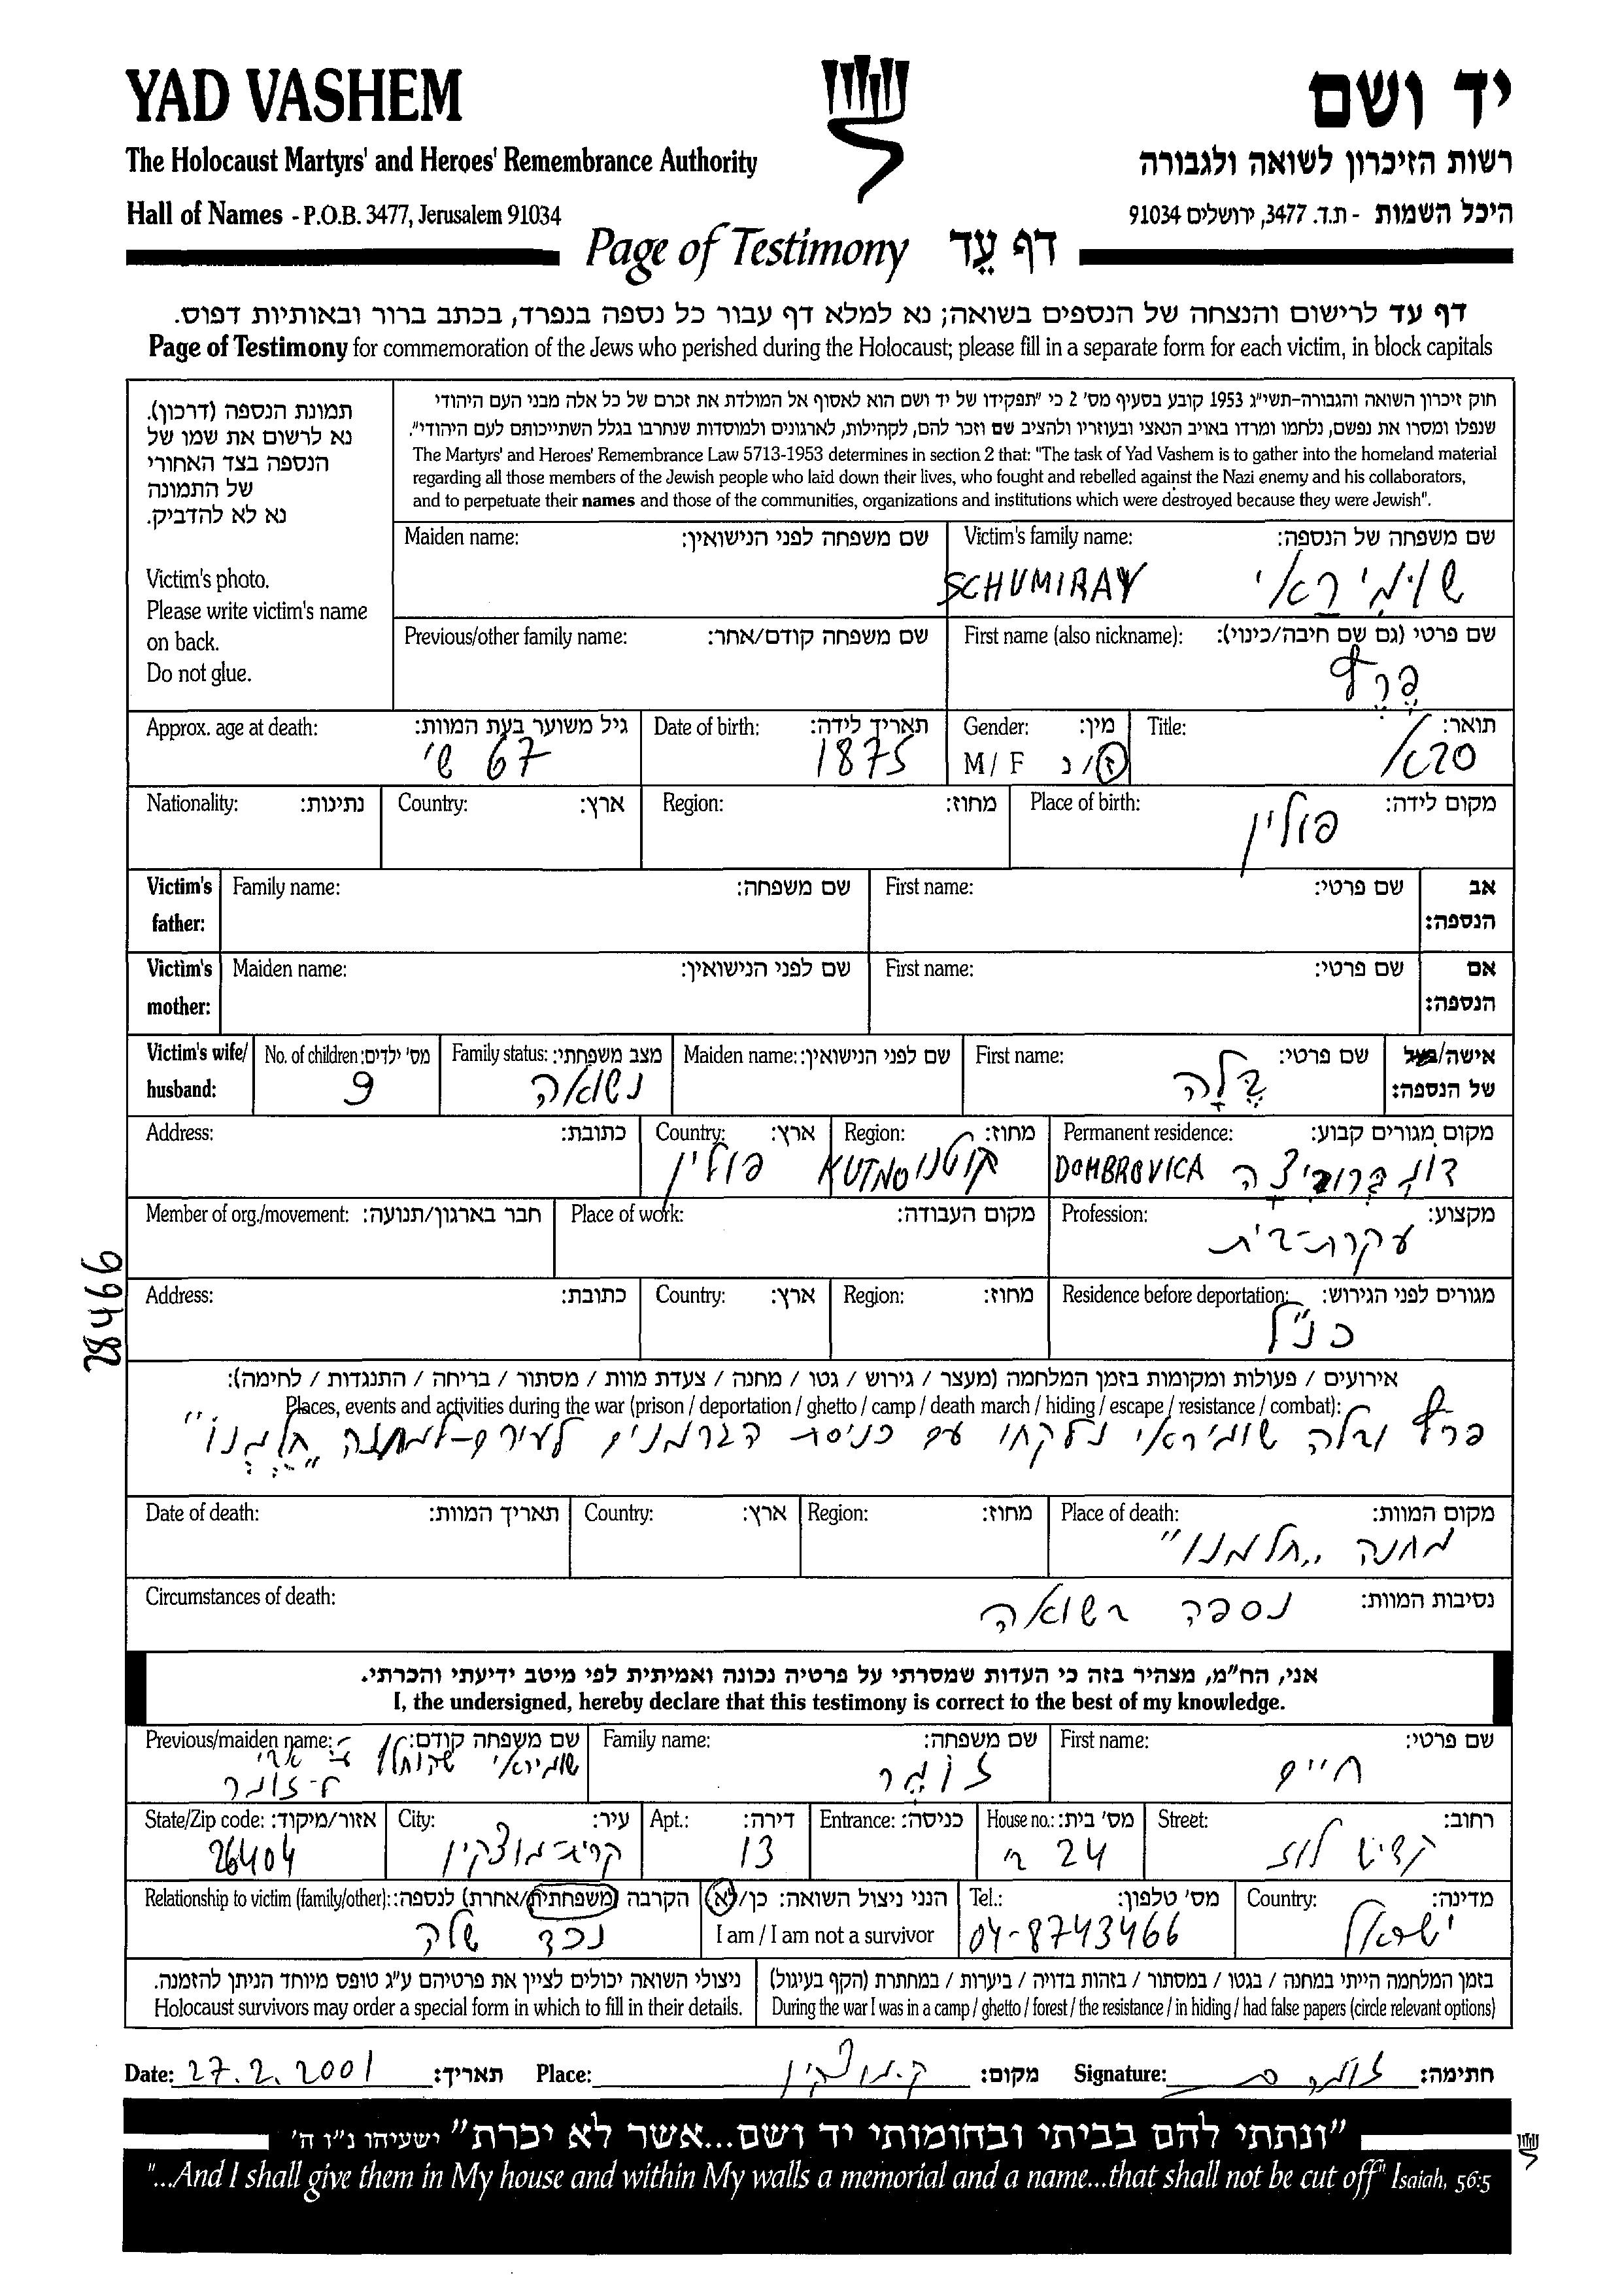 YAD VASHEM
יד ושם
The Holocaust Martyrs' and Heroes' Remembrance Authority
רשות הזיכרון לשואה ולגבורה
Hall of Names - P.O.B. 3477, Jerusalem 91034
היכל השמות - ת.ד. 3477, ירושלים 91034
Page of Testimony דף עֵד
דף עד לרישום והנצחה של הנספים בשואה; נא למלא דף עבור כל נספה בנפרד, בכתב ברור ובאותיות דפוס.
Page of Testimony for commemoration of the Jews who perished during the Holocaust; please fill in a separate form for each victim, in block capitals
תמונת הנספה (דרכון).
נא לרשום את שמו של
הנספה בצד האחורי
של התמונה
נא לא להדביק.
Victim's photo.
Please write victim's name
on back.
Do not glue.
חוק זיכרון השואה והגבורה-תשי"ג 1953 קובע בסעיף מס' 2 כי "תפקידו של יד ושם הוא לאסוף אל המולדת את זכרם של כל אלה מבני העם היהודי
שנפלו ומסרו את נפשם, נלחמו ומרדו באויב הנאצי ובעוזריו ולהציב שם וזכר להם, לקהילות, לארגונים ולמוסדות שנחרבו בגלל השתייכותם לעם היהודי".
The Martyrs' and Heroes' Remembrance Law 5713-1953 determines in section 2 that: "The task of Yad Vashem is to gather into the homeland material
regarding all those members of the Jewish people who laid down their lives, who fought and rebelled against the Nazi enemy and his collaborators,
and to perpetuate their names and those of the communities, organizations and institutions which were destroyed because they were Jewish".
Maiden name: שם משפחה לפני הנישואין:
Victim's family name: שם משפחה של הנספה:
SCHUMIRAY שומיראי
Previous/other family name: שם משפחה קודם/אחר:
First name (also nickname): שם פרטי (גם שם חיבה/כינוי):
פרל
Approx. age at death: גיל משוער בעת המוות:
67 ש'
Date of birth: תאריך לידה:
1875
Gender: מין:
M / F ז/נ
Title: תואר:
סבא
Nationality: נתינות:
Country: ארץ:
Region: מחוז:
Place of birth: מקום לידה:
פולין
Victim's father:
Family name: שם משפחה:
First name: שם פרטי:
אב הנספה:
Victim's mother:
Maiden name: שם לפני הנישואין:
First name: שם פרטי:
אם הנספה:
Victim's wife/ husband:
No. of children: מס' ילדים:
9
Family status: מצב משפחתי:
נשואה
Maiden name: שם לפני הנישואין:
First name: שם פרטי:
בלה
אישה/בעל של הנספה:
Address: כתובת:
Country: ארץ:
פולין
Region: מחוז:
KUTNO קוטנו
Permanent residence: מקום מגורים קבוע:
DOMBROVICA דומברוביצה
Member of org./movement: חבר בארגון/תנועה:
Place of work: מקום העבודה:
Profession: מקצוע:
עקרת-בית
28466
Address: כתובת:
Country: ארץ:
Region: מחוז:
Residence before deportation: מגורים לפני הגירוש:
כנ"ל
אירועים / פעולות ומקומות בזמן המלחמה (מעצר / גירוש / גטו / מחנה / צעדת מוות / מסתור / בריחה / התנגדות / לחימה):
Places, events and activities during the war (prison / deportation / ghetto / camp / death march / hiding / escape / resistance / combat):
פרל ובלה שומיראי נלקחו עם כניסת הגרמנים לעירם-למחנה "חלמנו"
Date of death: תאריך המוות:
Country: ארץ:
Region: מחוז:
Place of death: מקום המוות:
מחנה "חלמנו"
Circumstances of death: נסיבות המוות:
נספה בשואה
אני, הח"מ, מצהיר בזה כי העדות שמסרתי על פרטיה נכונה ואמיתית לפי מיטב ידיעתי והכרתי.
I, the undersigned, hereby declare that this testimony is correct to the best of my knowledge.
Previous/maiden name: שם משפחה קודם:
שומיראי שהוחלף
ל-זומר
Family name: שם משפחה:
זומר
First name: שם פרטי:
חיים
State/Zip code: אזור/מיקוד:
26404
City: עיר:
קרית-מוצקין
Apt.: דירה:
13
Entrance: כניסה:
House no.: מס' בית:
24
Street: רחוב:
קדיש לוז
Relationship to victim (family/other): הקרבה (משפחתית/אחרת) לנספה:
נכד שלה
הנני ניצול השואה: כן/לא
I am / I am not a survivor
Tel.: מס' טלפון:
04-8743466
Country: מדינה:
ישראל
ניצולי השואה יכולים לציין את פרטיהם ע"ג טופס מיוחד הניתן להזמנה.
Holocaust survivors may order a special form in which to fill in their details.
בזמן המלחמה הייתי במחנה / בגטו / במסתור / בזהות בדויה / ביערות / במחתרת (הקף בעיגול)
During the war I was in a camp / ghetto / forest / the resistance / in hiding / had false papers (circle relevant options)
Date: 27.2.2001 תאריך: Place: ק.מוצקין מקום: Signature: זומר ח חתימה:
"ונתתי להם בביתי ובחומותי יד ושם...אשר לא יכרת" ישעיהו נ"ו ה'
"...And I shall give them in My house and within My walls a memorial and a name...that shall not be cut off" Isaiah, 56:5